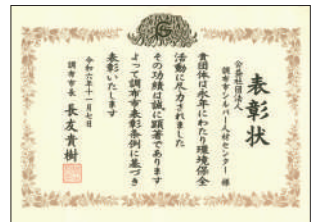 表彰状
公益社団法人
調布市シルバー人材センター 様
貴団体は永年にわたり環境保全
活動に尽力されました
その功績は誠に顕著であります
よって調布市表彰条例に基づき
表彰いたします
令和六年十一月七日
調布市長 長友貴樹